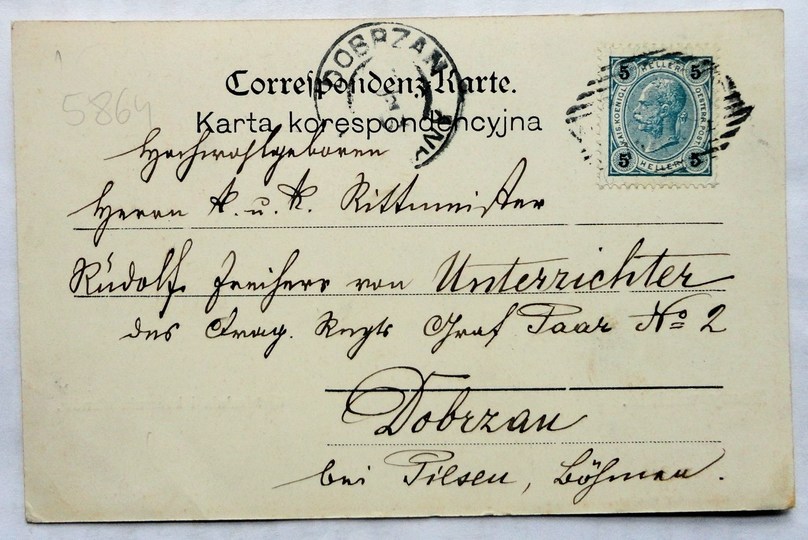 DOBRZAN
5 HELLER 5
KAIS. KOENIGL. OESTERR. POST
5 HELLER 5
Correspondenz-Karte.
5864
Karta korespondencyjna
Hochwohlgeboren
Herrn k. u. k. Rittmeister
Rudolf Freiherr von Unterrichter
des Drag. Regts Graf Paar No 2
Dobrzan
bei Pilsen, Böhmen.